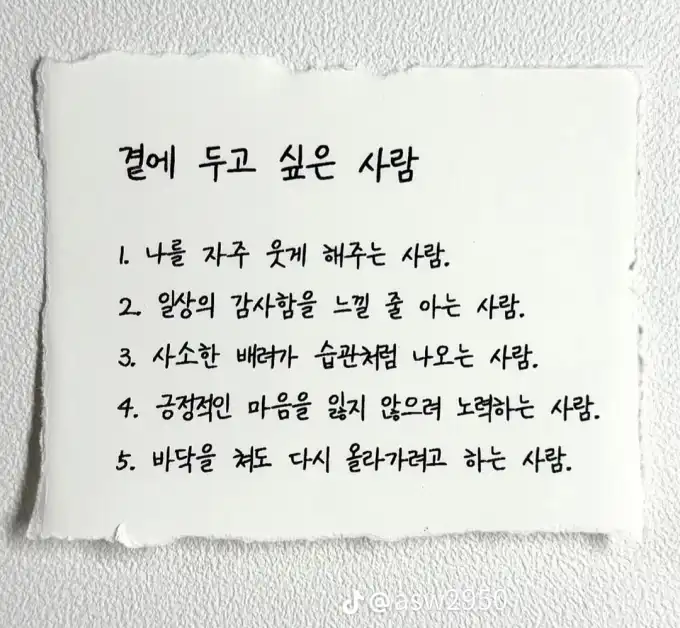 곁에 두고 싶은 사람
1. 나를 자주 웃게 해주는 사람.
2. 일상의 감사함을 느낄 줄 아는 사람.
3. 사소한 배려가 습관처럼 나오는 사람.
4. 긍정적인 마음을 잃지 않으려 노력하는 사람.
5. 바닥을 쳐도 다시 올라가려고 하는 사람.
@asw2950